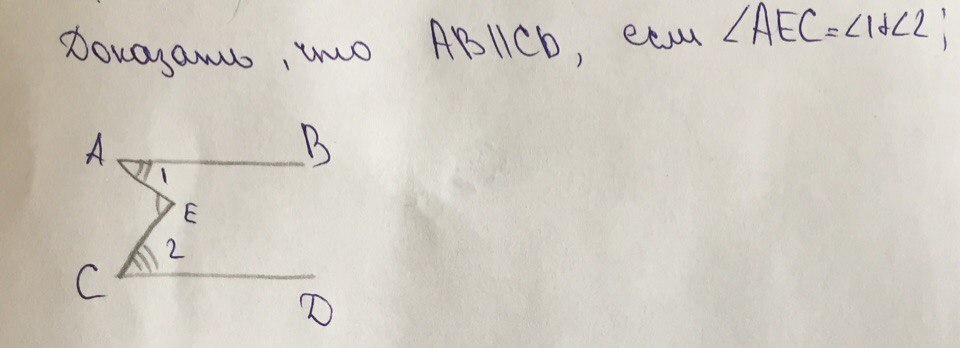 Доказать, что AB||CD, если ∠AEC=∠1+∠2;
A B
1
E
2
C
D